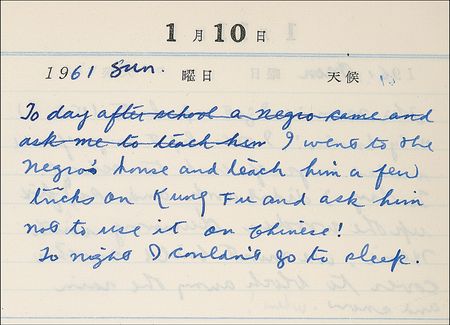 1月10日
1961 Sun. 曜日 天候
To day after school a negro came and
ask me to teach him I went to the
Negro's house and teach him a few
tricks on Kung Fu and ask him
not to use it on Chinese!
To night I couldn't go to sleep.